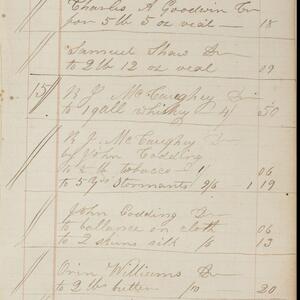 Charles A Goodwin Cr
for 5 lb 5 oz veal 18
Samuel Shaw Dr
to 2 lb 12 oz veal 09
15 R J McCaughey Dr
to 1 gall whisky 4/ 50
R J McCaughy Dr
by John Codding
to ½ lb tobacco 1/ 06
to 5 yds Stormants 2/6 1 19
John Codding Dr
to ballance on cloth 06
to 2 skins silk /6 13
Orin Williams Dr
to 2 lbs butter /10 20